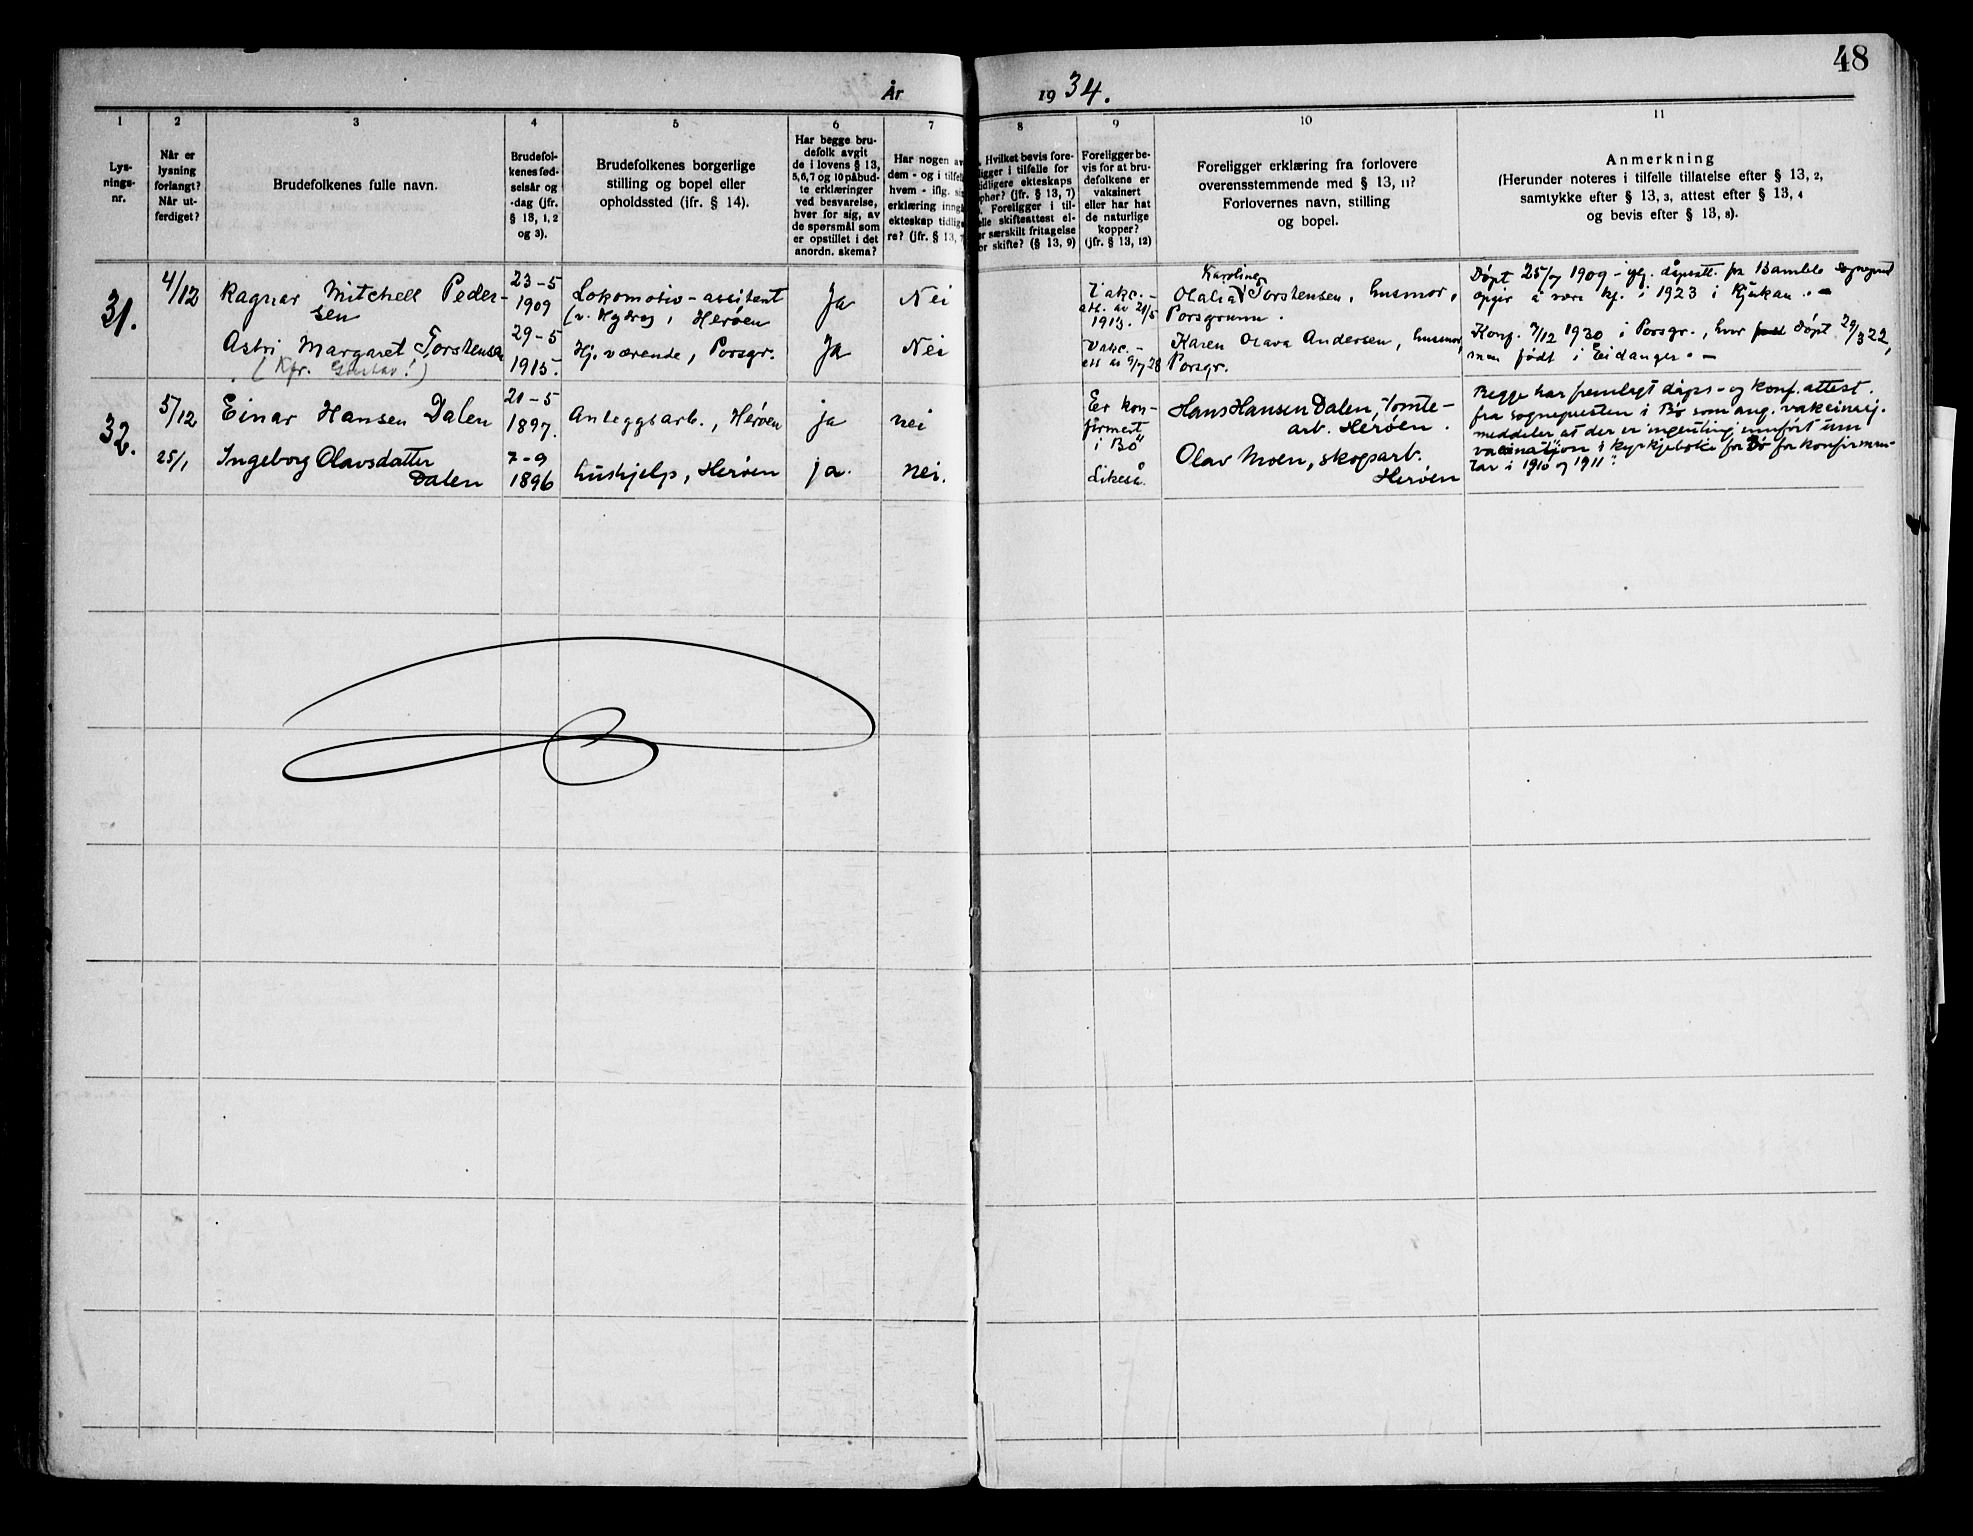 48
År 1934.
1
2
3
4
5
6
7
8
9
10
11
Lys-
nings-
nr.
Når er
lysning
forlangt?
Når ut-
ferdiget?
Brudefolkenes fulle navn.
Brudefol-
kenes fød-
selsår og
-dag (jfr.
§ 13, 1, 2
og 3).
Brudefolkenes borgerlige
stilling og bopel eller
opholdssted (ifr. § 14).
Har begge bru-
defolk avgit
de i lovens § 13,
5, 6, 7 og 10 påbud-
te erklæringer
ved besvarelse,
hver for sig, av
de spørsmål som
er opstillet i det
anordn. skema?
Har nogen av
dem - og i tilfelle
hvem - iflg. si
erklæring inngå
ekteskap tidlige
re? (jfr. § 13, 7
Hvilket bevis fore-
ligger i tilfelle for
tidligere ekteskaps
ophør? (jfr. § 13, 7)
Foreligger i til-
elle skifteattest el-
er særskilt fritagelse
or skifte? (§ 13, 9)
Foreligger be-
vis for at bru-
defolkene er
vaksinert
eller har hat
de naturlige
kopper?
(jfr. § 13, 12)
Foreligger erklæring fra forlovere
overensstemmende med § 13, 11?
Forlovernes navn, stilling
og bopel.
Anmerkning
(Herunder noteres i tilfelle tillatelse efter § 13, 2,
samtykke efter § 13, 3, attest efter § 13, 4
og bevis efter § 13, 8).
31.
4/12
Ragnar Mitchell Peder-
sen
23-5
1909
Lokomotiv-assitent
(v. Hydro), Herøen
Ja
Nei
Vakc.-
att. av 21/5
1913.
Karoline
Olalia Torstensen, husmor,
Porsgrunn.
Døpt 25/7 1909 - iflg. dåpsatt. fra Bamble sogneprest
opgir å være kf. i 1923 i Rjukan. -
Astri Margaret Torstensen
(Kfr. Gustav!)
29-5
1915.
Hj. værende, Porsgr.
Ja
Nei
Vakc.-
att av 9/7 28
Karen Olava Andersen, husmor,
Porsgr.
Konf. 7/12 1930 i Porsgr., hvor døpt 29/3 22,
men født i Eidanger. -
32.
5/12
Einar Hansen Dalen
21-5
1897.
Anleggsarb., Herøen
ja
nei
Er kon-
firmert
i Bø
Hans Hansen Dalen, tomte-
arb. Herøen.
Begge har fremlagt dåps- og konf. attest.
fra sognepresten i Bø som ang. vakcinasj.
meddeler at der er "ingenting innført um
vaccinasjon i kyrkjeboki for Bø for konfirman-
tar i 1910 og 1911".
25/1
Ingeborg Olavsdatter
Dalen
7-9
1896
hushjelp, Herøen
ja.
nei.
Likeså.
Olav Moen, skogsarb.
Herøen